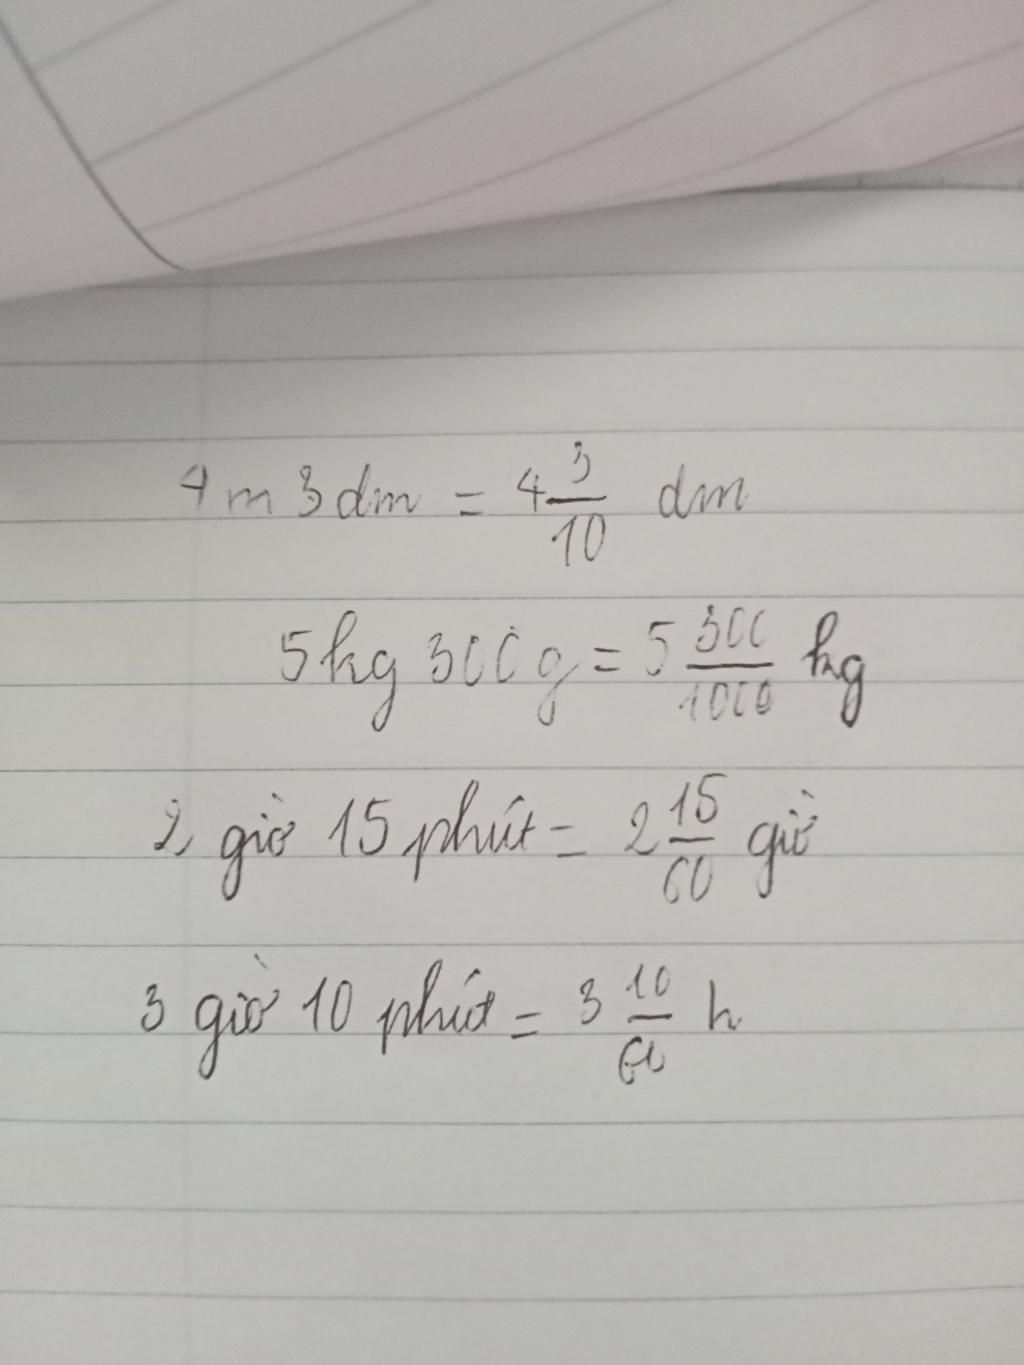 4m 3dm = 4 3/10 dm
5kg 300g = 5 300/1000 kg
2 giờ 15 phút = 2 15/60 giờ
3 giờ 10 phút = 3 10/60 h